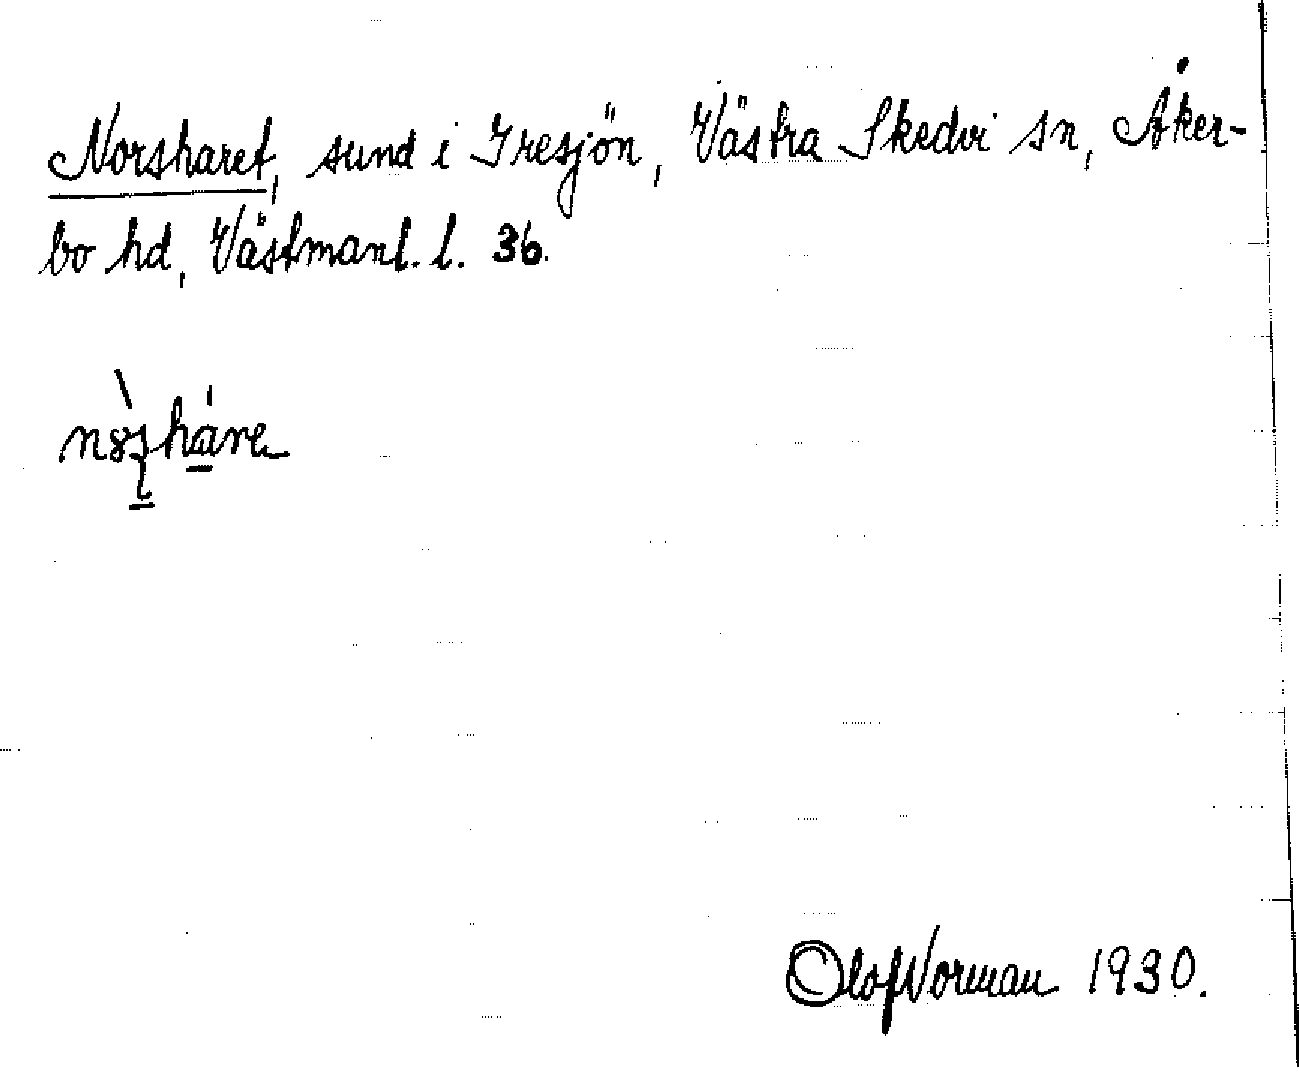 Norsharet, sund i Iresjön, Västra Skedvi sn, Åker-
bo hd, Västmanl. l. 36.
Olof Norman 1930.